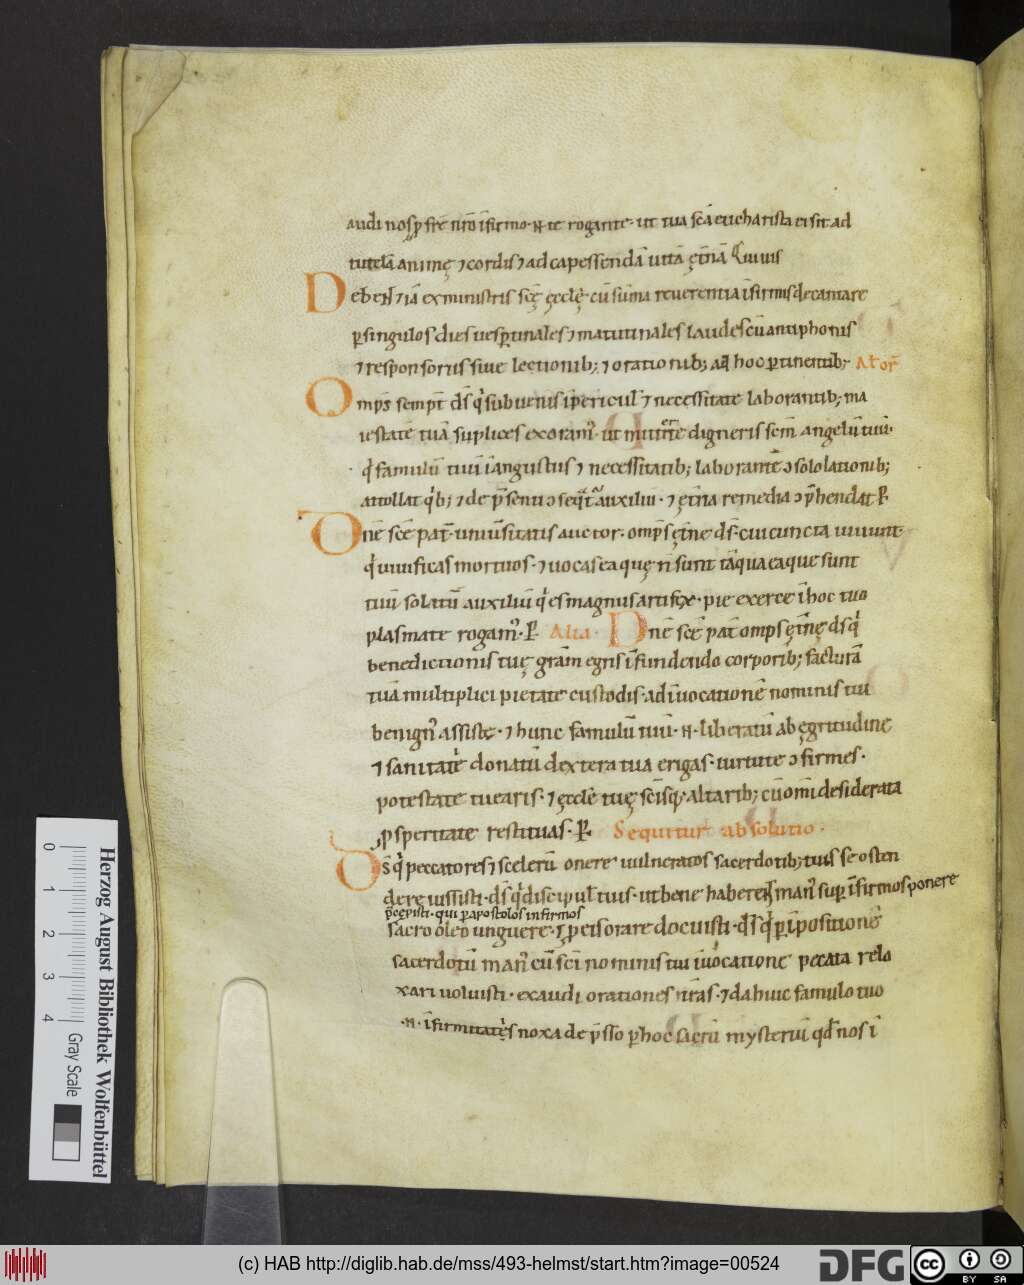 audi nos ꝓ fr̄e nr̄o īfirmo · N · te rogante · ut tua sc̄a eucharistia ei sit ad
tutelā animę ⁊ cordis ⁊ ad capessendā uitā ęt̄nā
Deben̄t ⁊iā ex ministris sc̄ę ęcclę̄ · cū sūma reuerentia īfirmis decantare
ꝑ singulos dies uesꝑtinales ⁊ matutinales laudes cū antiphonis
⁊ responsoriis siue lectionib; ⁊ orationib; ad hoc ꝑtinentib;
Omp̄s sempt̄ d̄s q̇ subuenis ī pericul̄ ⁊ necessitate laborantib; ma
iestatē tuā suplices exoram᾽ · ut mittere digneris sc̄m angelū tuū ·
q̇ famulū tuū ī angustiis ⁊ necessitatib; laborantē ɔsolationib;
attollat q̇b; ⁊ de p̄senti ɔseq̄t̄ auxiliū · ⁊ ęt̄na remedia ɔp̄hendat P̄
Dn̄e sc̄e pat̄ · uniu̅sitatis auctor · omp̄s ęt̄ne d̄s · cui cuncta uiuunt ·
q̇ uiuificas mortuos · ⁊ uocas ea quę n̄ sunt tāqua ea que sunt
tuū solatū auxiliū q̇ es magnus artifęx · pie exerce ī hoc tuo
plasmate rogam᾽ · P̄ Alia · Dn̄e sc̄e pat̄ omp̄s ęt̄nę d̄s q̇
benedictionis tuę grām egris īfundendo corporib; facturā
tuā multiplici pietate custodis · ad īuocationē nominis tui
benign᾽ assistę · ⁊ hunc famulū tuū · N · liberatū ab ęgritudine
⁊ sanitatē donatū dextera tua erigas · uirtute ɔfirmes ·
potestate tuearis · ⁊ ęcclę̄ tuę sc̄isq; altarib; cū om̄i desiderata
ꝓsperitate restituas · P̄ Sequitur absolutio ·
D̄s q̇ peccatores ⁊ scelerū onere uulneratos sacerdotib; tuis se osten
dere iussisti · d̄s q̇ discipul̄ tuis · ut bene haberent man᾽ suꝑ īfirmos ponere
p̄cępisti · qui ꝑ apostolos infirmos
sacro oleo unguere · ⁊ ꝓ eis orare docuisti · d̄s q̇ ꝑ īpositionē
sacerdotū man᾽ cū sc̄i nominis tui īuocatione peccata rela
xari uoluisti · exaudi orationes nr̄as · ⁊ da huic famulo tuo
· N · īfirmitatis noxa dep̄sso ꝑ hoc sacrū mysteriū qd̄ nos ī
0 1 2 3 4
Gray Scale
Herzog August Bibliothek Wolfenbüttel
(c) HAB http://diglib.hab.de/mss/493-helmst/start.htm?image=00524
DFG
cc BY SA